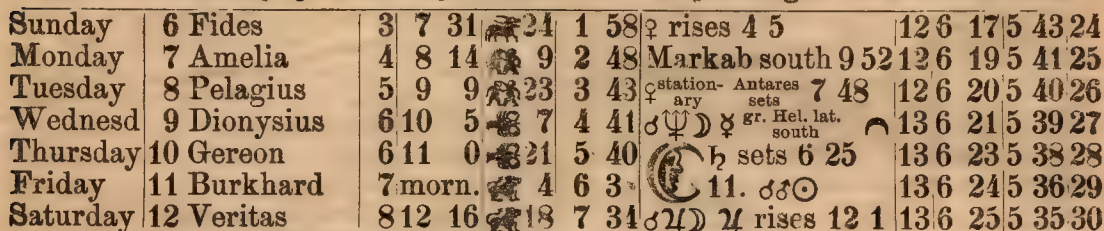 Sunday 6 Fides 3 7 31 24 1 58 ♀ rises 4 5 12 6 17 5 43 24
Monday 7 Amelia 4 8 14 9 2 48 Markab south 9 52 12 6 19 5 41 25
Tuesday 8 Pelagius 5 9 9 23 3 43 ♀ station-ary Antares sets 7 48 12 6 20 5 40 26
Wednesd 9 Dionysius 6 10 5 7 4 41 ☌♆☽ ☿ gr. Hel. lat. south 13 6 21 5 39 27
Thursday 10 Gereon 6 11 0 21 5 40 ♄ sets 6 25 13 6 23 5 38 28
Friday 11 Burkhard 7 morn. 4 6 3 11. ☌♂☉ 13 6 24 5 36 29
Saturday 12 Veritas 8 12 16 18 7 34 ☌♃☽ ♃ rises 12 1 13 6 25 5 35 30